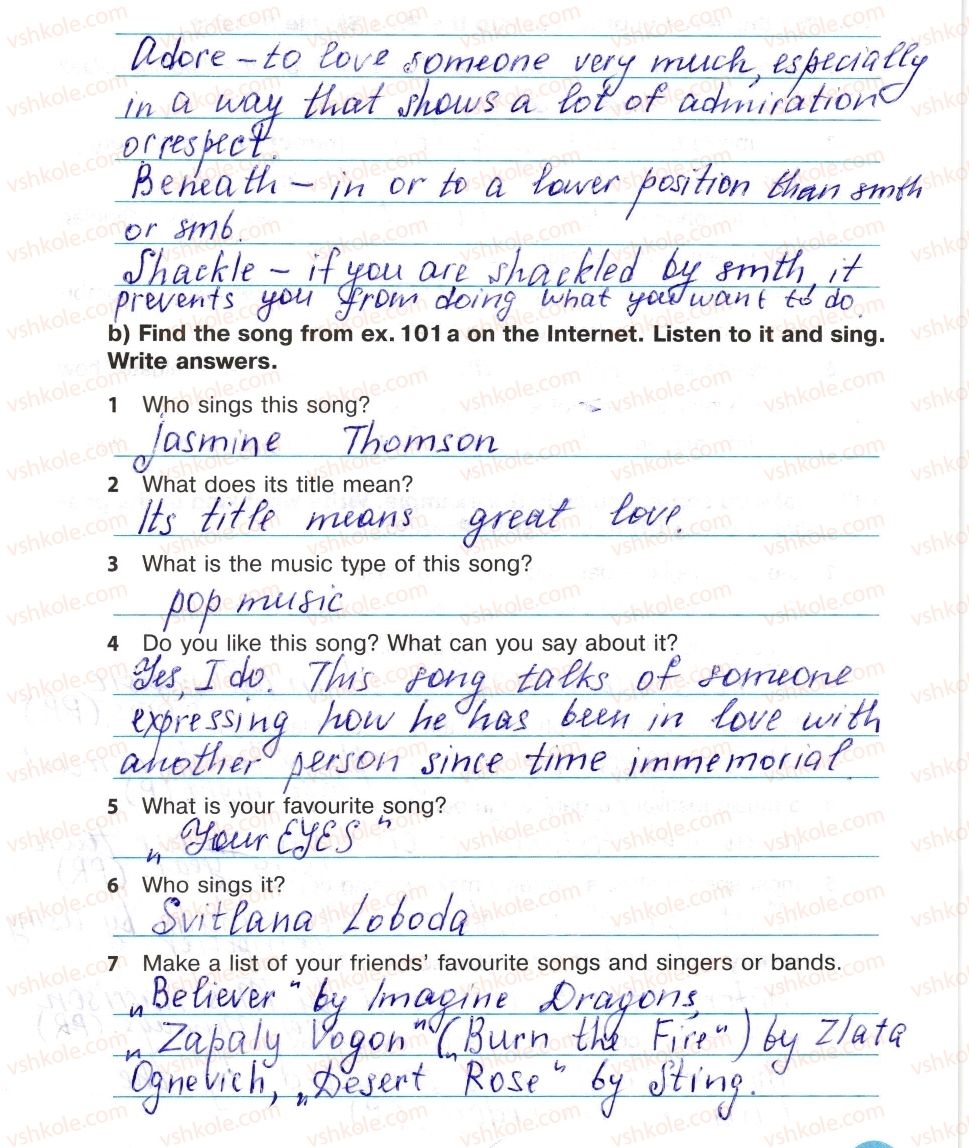 Adore – to love someone very much, especially
in a way that shows a lot of admiration
or respect.
Beneath – in or to a lower position than smth
or smb.
Shackle – if you are shackled by smth, it
prevents you from doing what you want to do
b) Find the song from ex. 101 a on the Internet. Listen to it and sing.
Write answers.
1 Who sings this song?
Jasmine Thomson
2 What does its title mean?
Its title means great love.
3 What is the music type of this song?
pop music
4 Do you like this song? What can you say about it?
Yes, I do. This song talks of someone
expressing how he has been in love with
another person since time immemorial.
5 What is your favourite song?
„Your EYES"
6 Who sings it?
Svitlana Loboda
7 Make a list of your friends' favourite songs and singers or bands.
„Believer" by Imagine Dragons,
„Zapaly Vogon" („Burn the Fire") by Zlata
Ognevich, „Desert Rose" by Sting.
vshkole.com